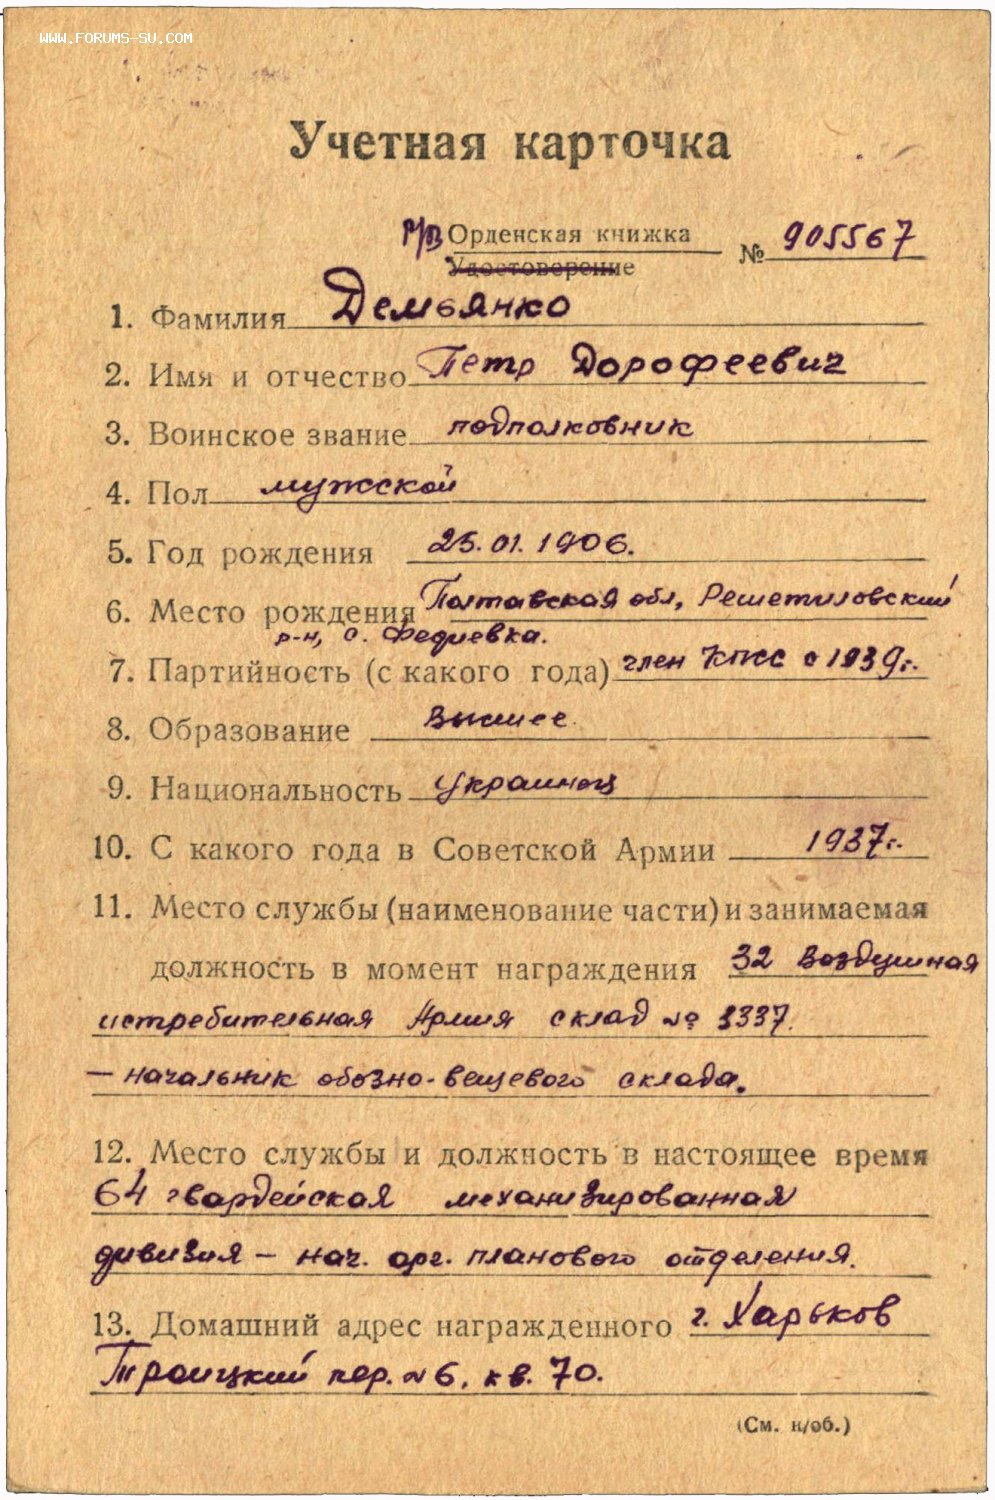 WWW.FORUMS-SU.COM
Учетная карточка
Орденская книжка
Удостоверение
№ 905567
1. Фамилия Демьянко
2. Имя и отчество Петр Дорофеевич
3. Воинское звание подполковник
4. Пол мужской
5. Год рождения 25.01.1906.
6. Место рождения Полтавская обл, Решетиловский
р-н, с. Федиевка.
7. Партийность (с какого года) член КПСС с 1939г.
8. Образование Высшее
9. Национальность Украинец
10. С какого года в Советской Армии 1937г.
11. Место службы (наименование части) и занимаемая
должность в момент награждения 32 Воздушная
истребительная Армия склад № 3337.
— начальник обозно-вещевого склада.
12. Место службы и должность в настоящее время
64 гвардейская механизированная
дивизия — нач. орг. планового отделения.
13. Домашний адрес награжденного г. Харьков
Троицкий пер. № 6, кв. 70.
(См. н/об.)